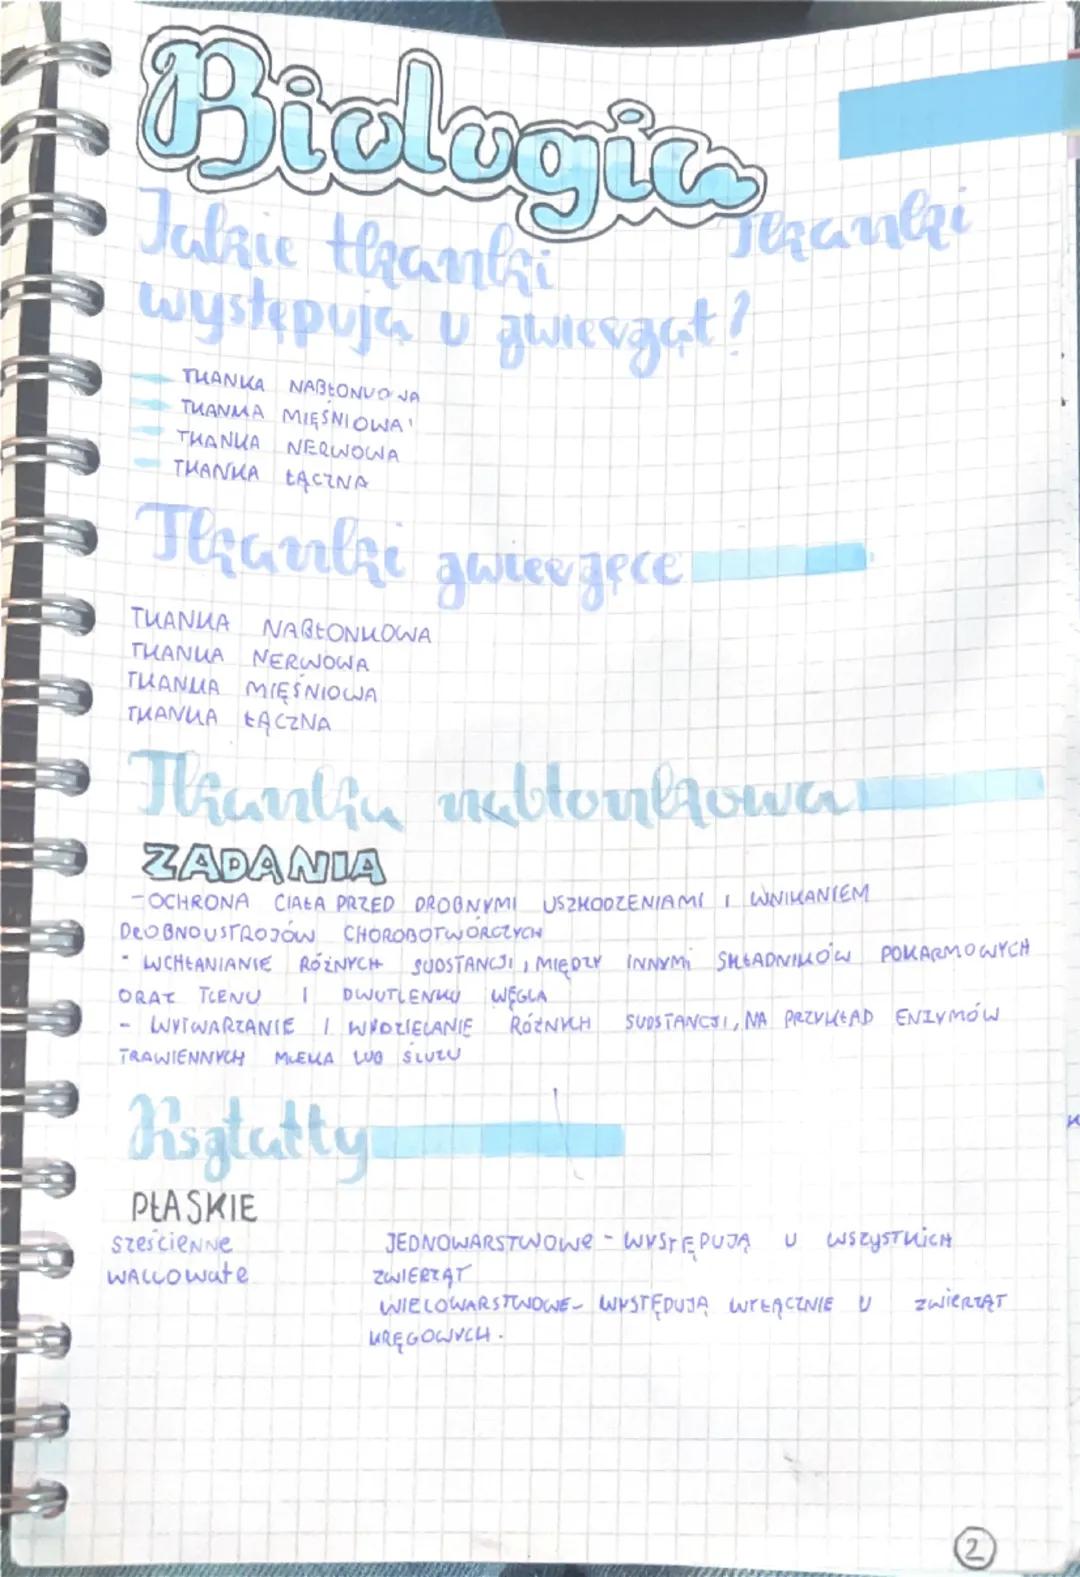 Biologia
Tkanki
Jakie tkanki
występują u zwierząt?
TKANKA NABŁONKOWA
TKANKA MIĘŚNIOWA
TKANKA NERWOWA
TKANKA ŁĄCZNA
Tkanki zwierzęce
TKANKA NABŁONKOWA
TKANKA NERWOWA
TKANKA MIĘŚNIOWA
TKANKA ŁĄCZNA
Tkanka nabłonkowa
ZADANIA
-OCHRONA CIAŁA PRZED DROBNYMI USZKODZENIAMI I WNIKANIEM
DROBNOUSTROJÓW CHOROBOTWÓRCZYCH
- WCHŁANIANIE RÓŻNYCH SUBSTANCJI, MIĘDZY INNYMI SKŁADNIKÓW POKARMOWYCH
ORAZ TLENU I DWUTLENKU WĘGLA
- WYTWARZANIE I WYDZIELANIE RÓŻNYCH SUBSTANCJI, NA PRZYKŁAD ENZYMÓW
TRAWIENNYCH MLEKA LUB ŚLUZU
Kształty
PŁASKIE
sześcienne
walcowate
JEDNOWARSTWOWE - WYSTĘPUJĄ U WSZYSTKICH
ZWIERZĄT
WIELOWARSTWOWE- WYSTĘPUJĄ WYŁĄCZNIE U ZWIERZĄT
KRĘGOWYCH.
2